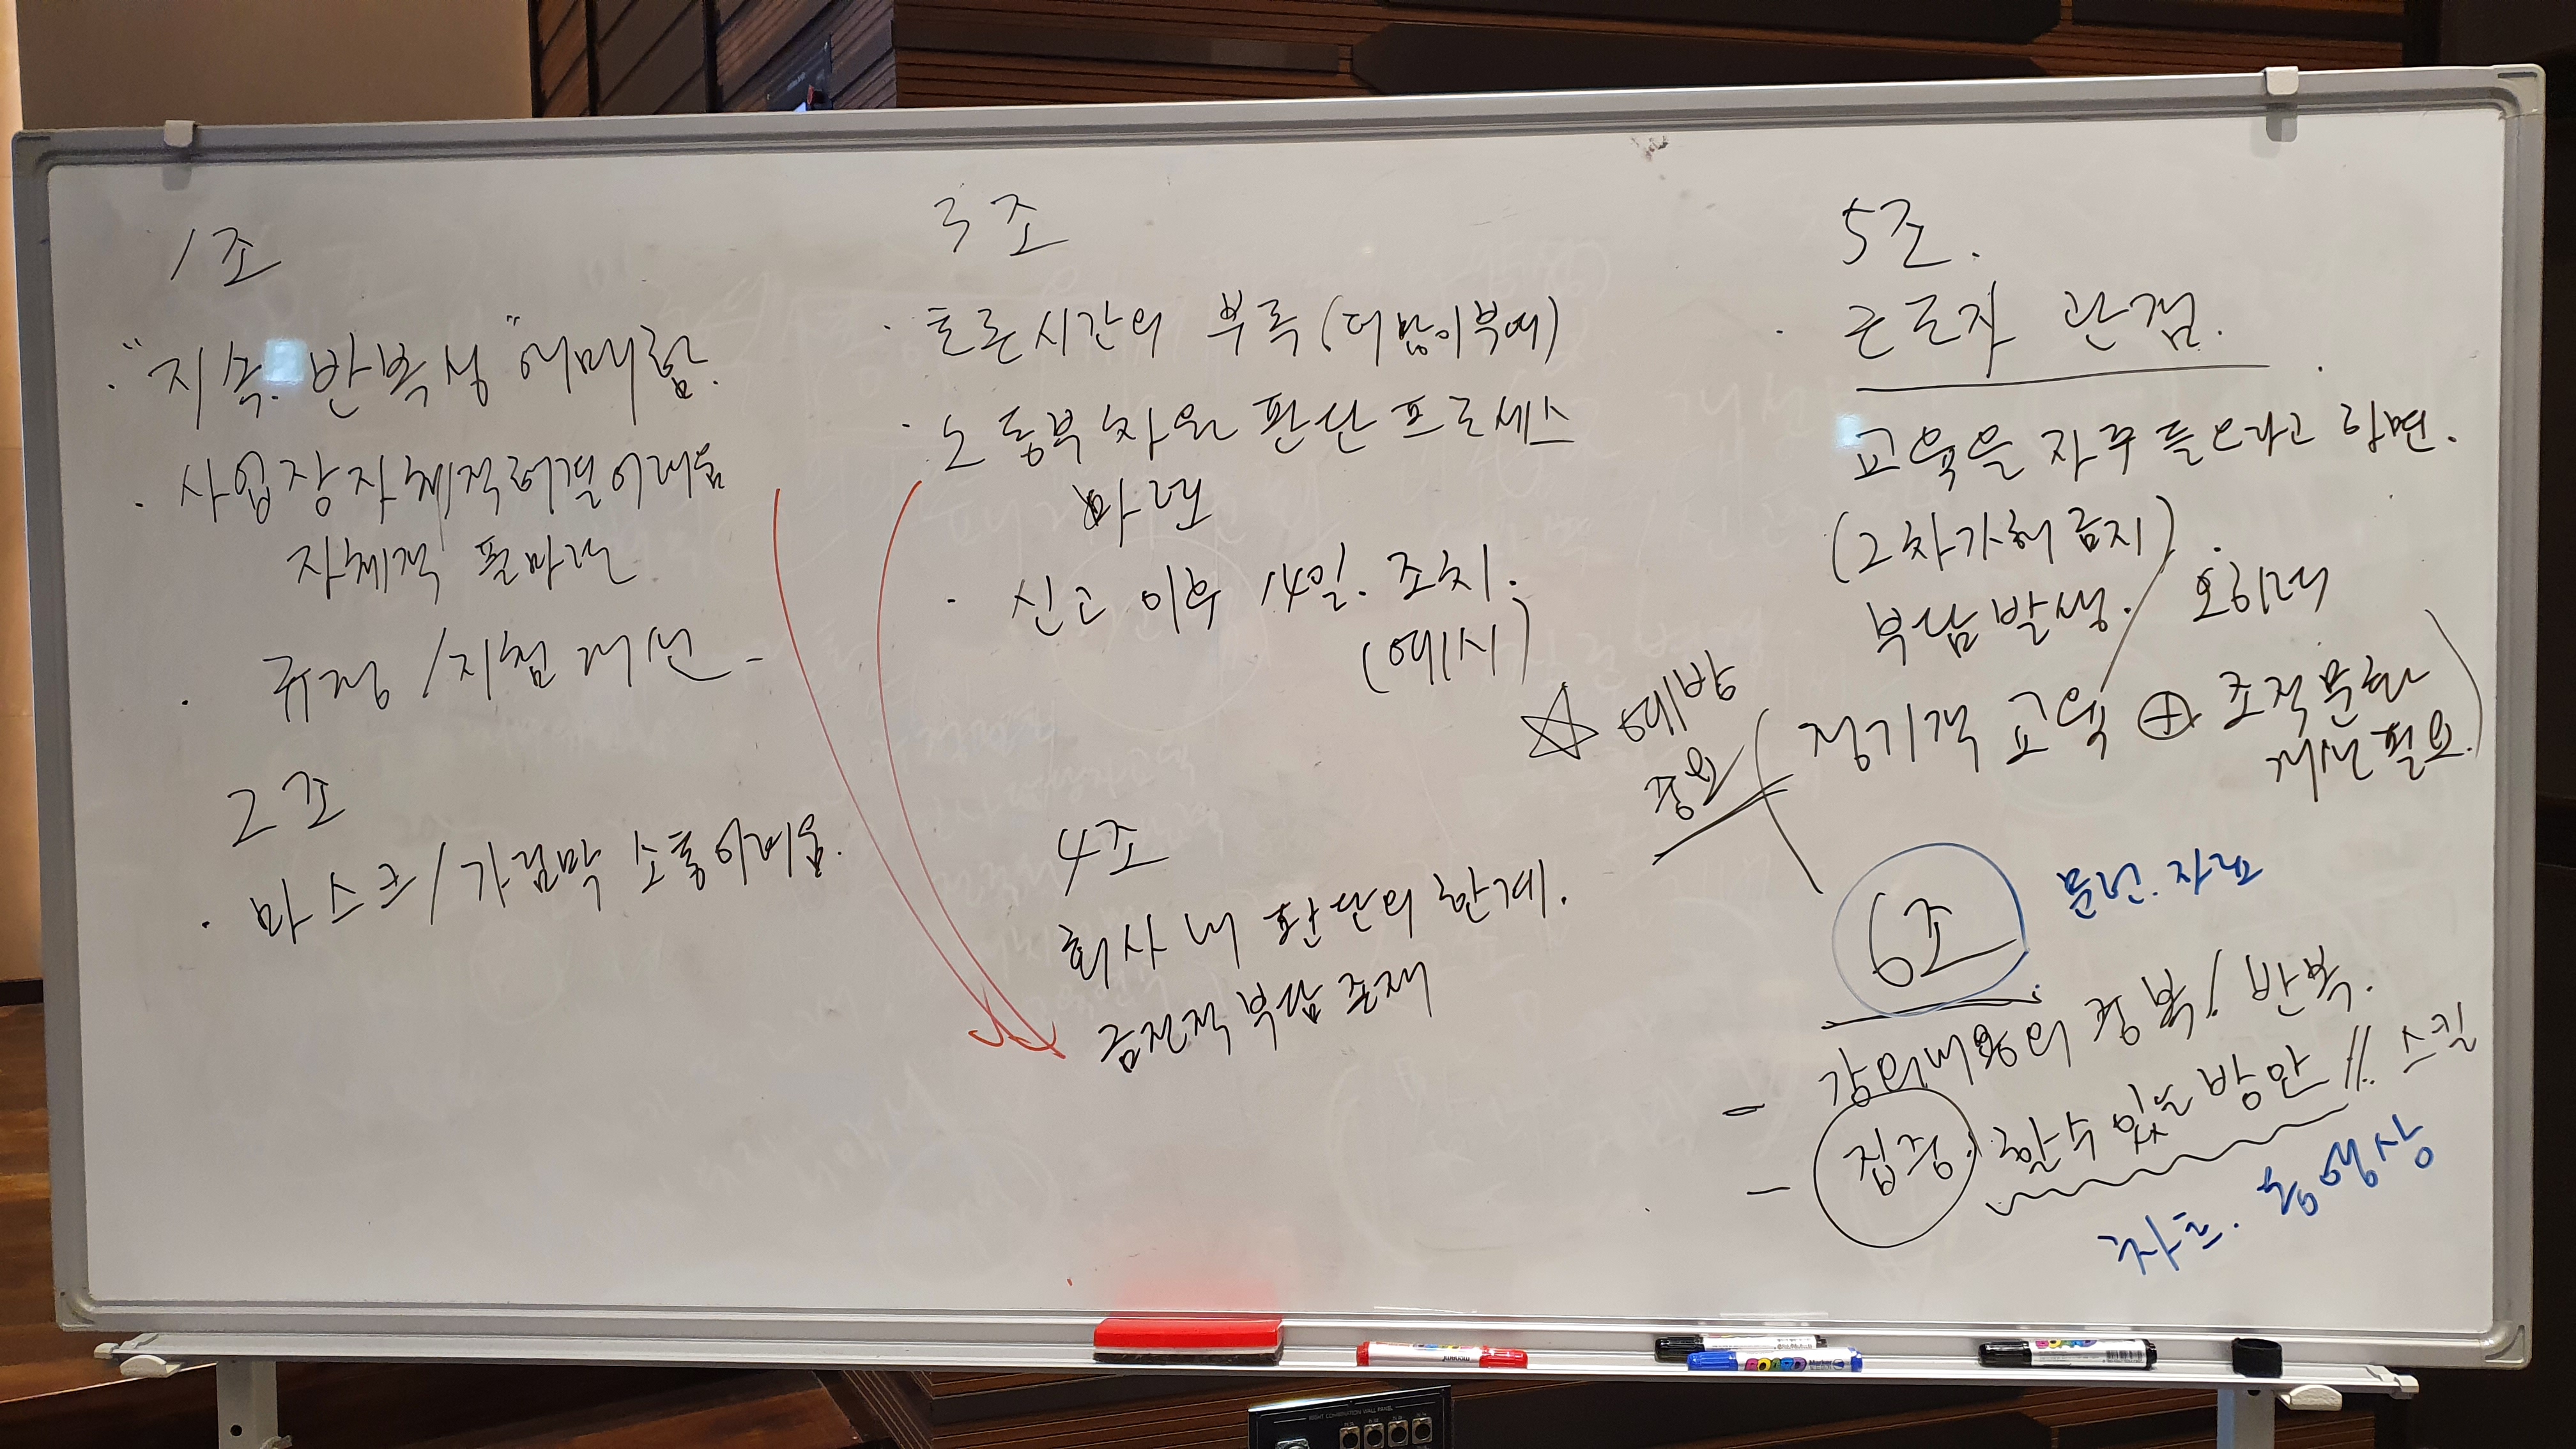 1조
· "지속.반복성" 애매함.
· 사업장 자체적 해결 어려움
자체적 풀 마련
· 규정 / 지침 개선 -
2조
· 마스크 / 가림막 소통 어려움.
3조
· 토론시간의 부족 (더 많이 부여)
· 노동부 차원 판단 프로세스
마련
· 신고 이후 14일. 조치.
(예시)
4조
회사 내 판단의 한계.
금전적 부담 존재
5조.
· 근로자 관점.
교육을 자주 들으라고 하면.
(2차가해 금지)
부담 발생. / 오히려
☆ 예방
중요
정기적 교육 ⊕ 조직문화
개선 필요.
6조
문헌. 자료
- 강의내용의 중복 / 반복.
- 집중. 할 수 있는 방안 //. 스킬
차트. 동영상